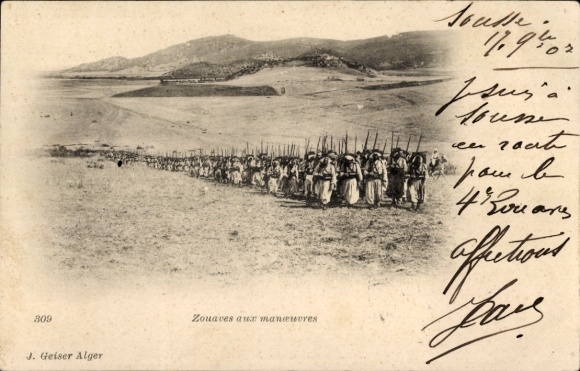 Sousse.
17. 9bre 02
Je suis à
Sousse
en route
pour le
4e Zouaves
affections
309
Zouaves aux manœuvres
J. Geiser Alger